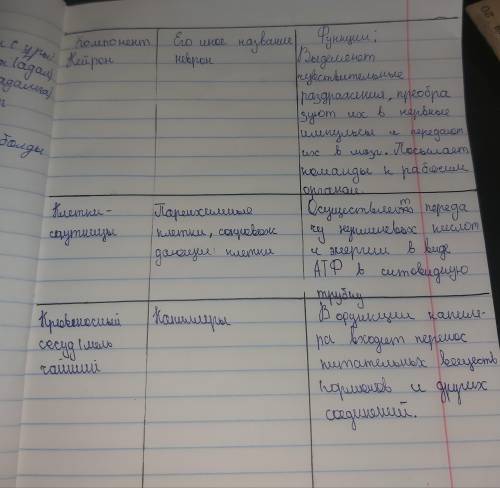 Компонент Его иное название Функции:
Нейрон неврон Выделяют
чувствительные
раздражения, преобра
зуют их в нервные
импульсы и передают
их в мозг. Посылает
команды к рабочим
органам.
Клетки- Паренхимные Осуществляет переда
спутницы клетки, сопровож чу нуклеиновых кислот
дающие клетки и энергии в виде
АТФ в ситовидную
трубку
Кровеносный Капилляры В функции капиля-
сосуд (мель ра входит перенос
чайший питательных веществ
гормонов и других
соединений.